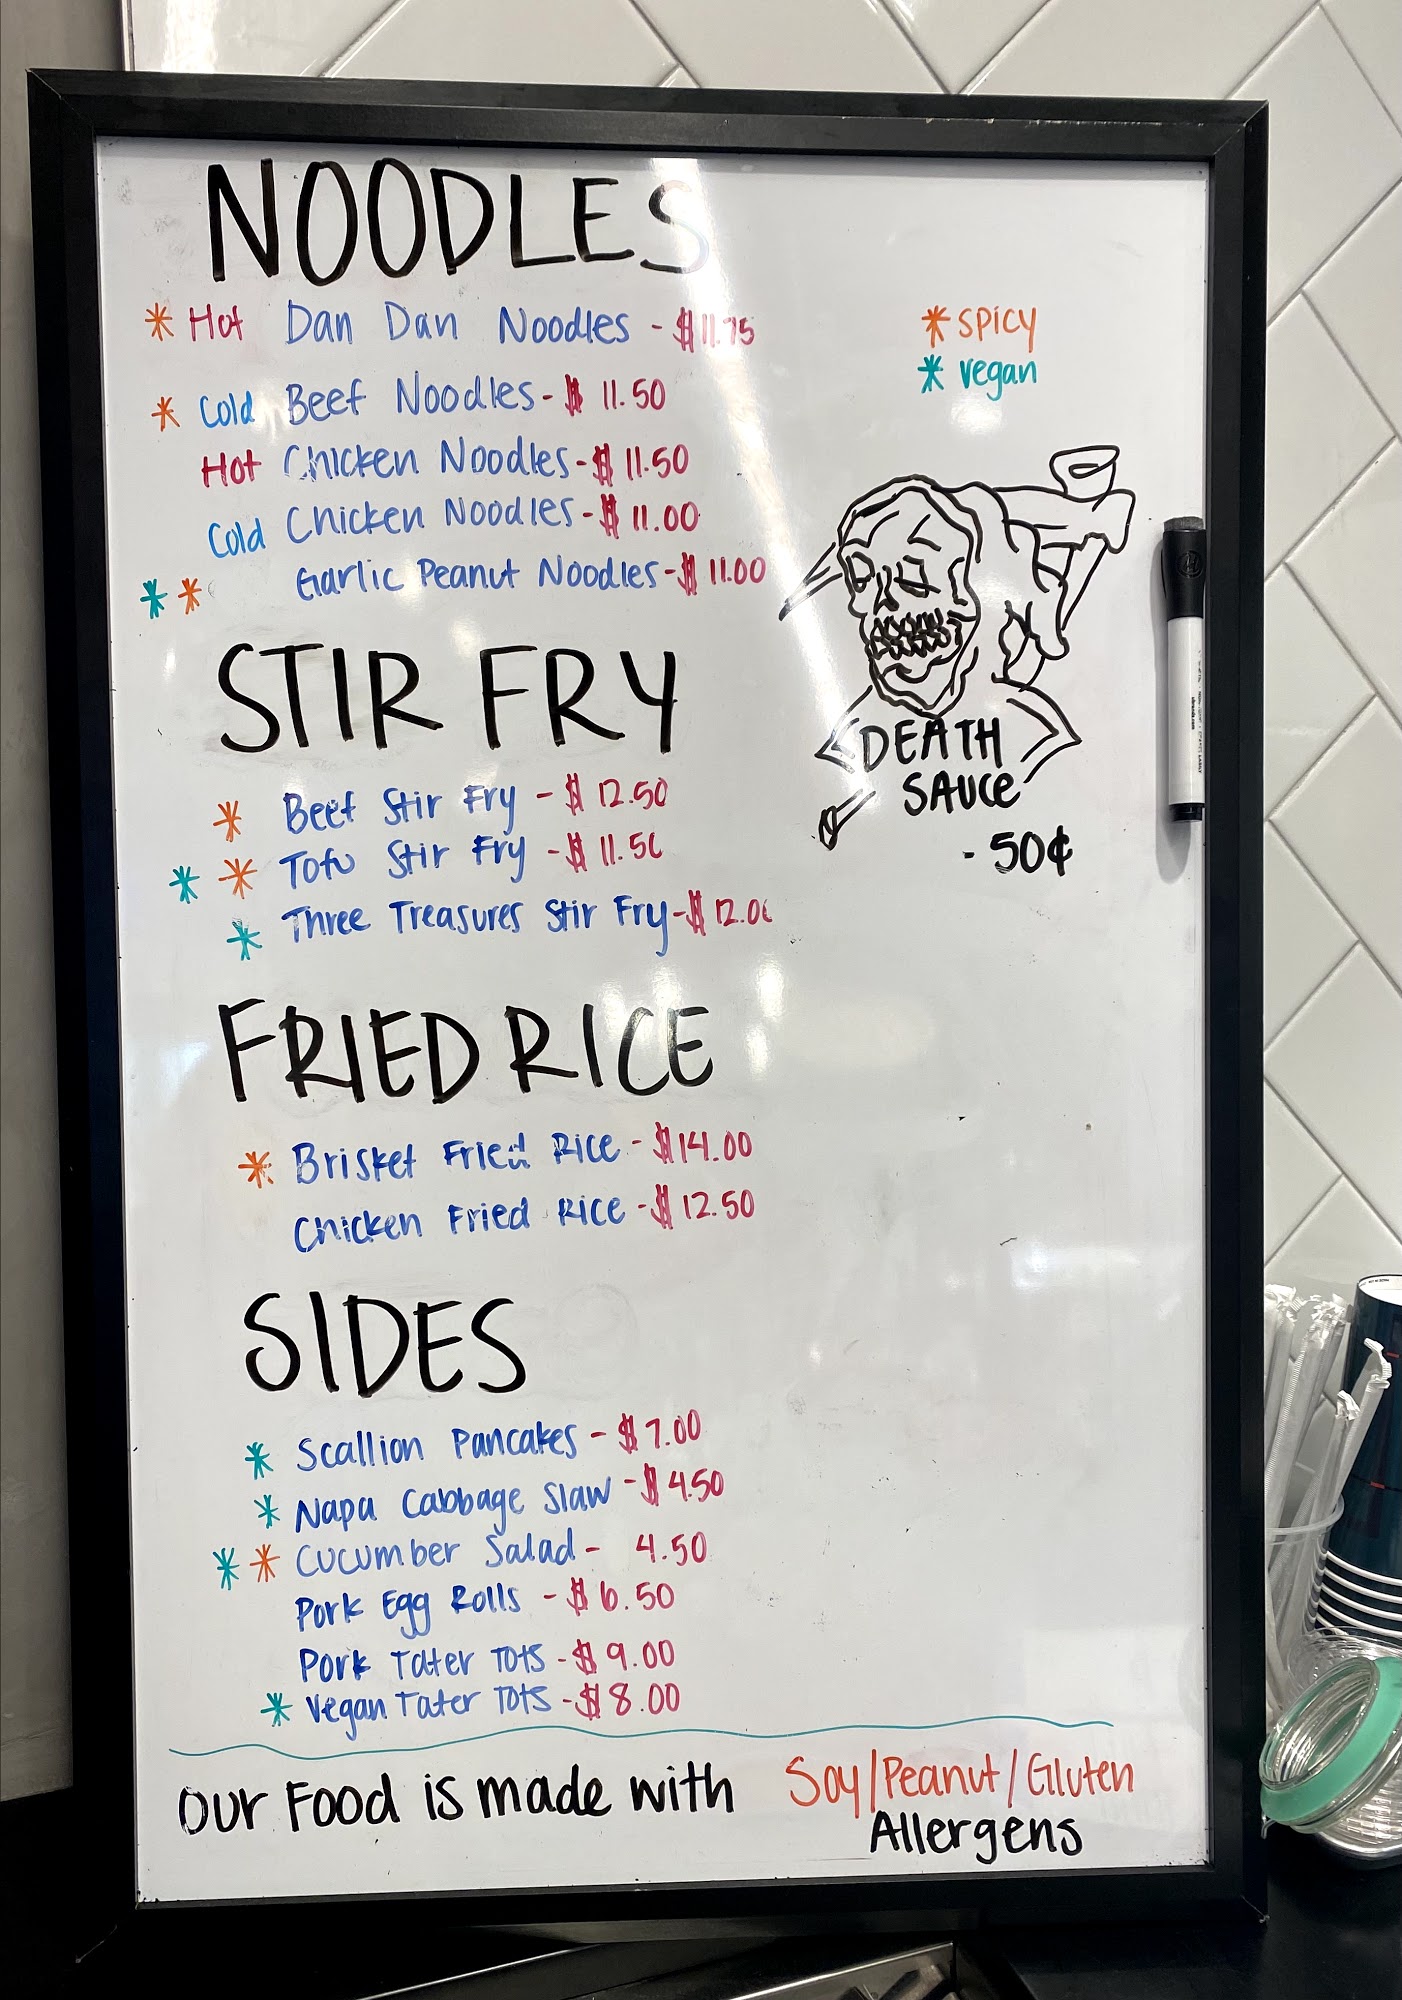 NOODLES
* Hot Dan Dan Noodles - $11.75
* Cold Beef Noodles - $ 11.50
Hot Chicken Noodles - $ 11.50
Cold Chicken Noodles - $ 11.00
* * Garlic Peanut Noodles - $ 11.00
* spicy
* vegan
DEATH
SAUCE
- 50¢
STIR FRY
* Beef Stir Fry - $ 12.50
* * Tofu Stir Fry - $ 11.50
* Three Treasures Stir Fry - $ 12.00
FRIED RICE
* Brisket Fried Rice - $14.00
Chicken Fried Rice - $ 12.50
SIDES
* Scallion Pancakes - $ 7.00
* Napa Cabbage Slaw - $ 4.50
* * Cucumber Salad - 4.50
Pork Egg Rolls - $ 6.50
Pork Tater Tots - $ 9.00
* Vegan Tater Tots - $ 8.00
Our Food is made with Soy/Peanut/Gluten
Allergens